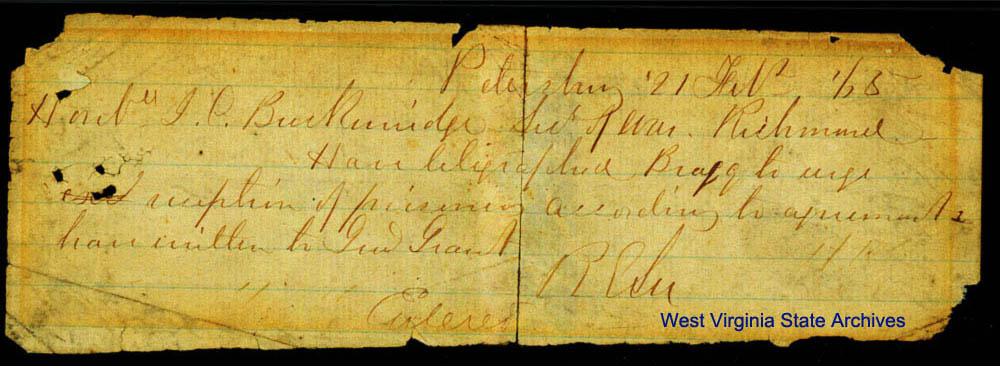 Petersburg 21 Feby /65
Honble J. C. Breckinridge Secy of War. Richmond
Have telegraphed Bragg to urge
reception of prisoners according to agreement &
have written to Genl Grant
R E Lee
West Virginia State Archives